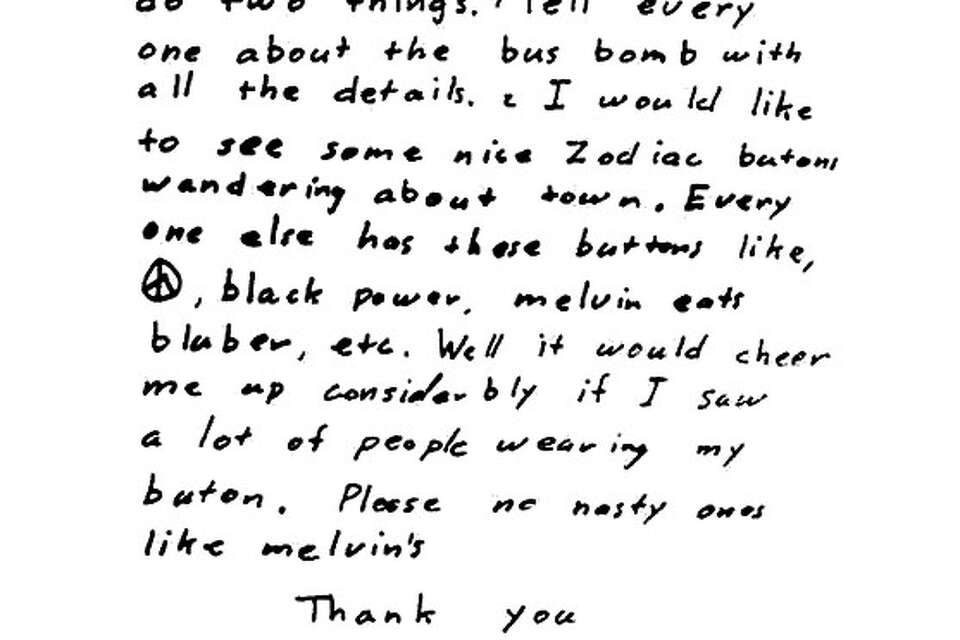 do two things. 1 Tell every
one about the bus bomb with
all the details. 2 I would like
to see some nice Zodiac butons
wandering about town. Every
one else has these buttons like,
☮, black power, melvin eats
bluber, etc. Well it would cheer
me up considerbly if I saw
a lot of people wearing my
buton. Please no nasty ones
like melvin's
Thank you